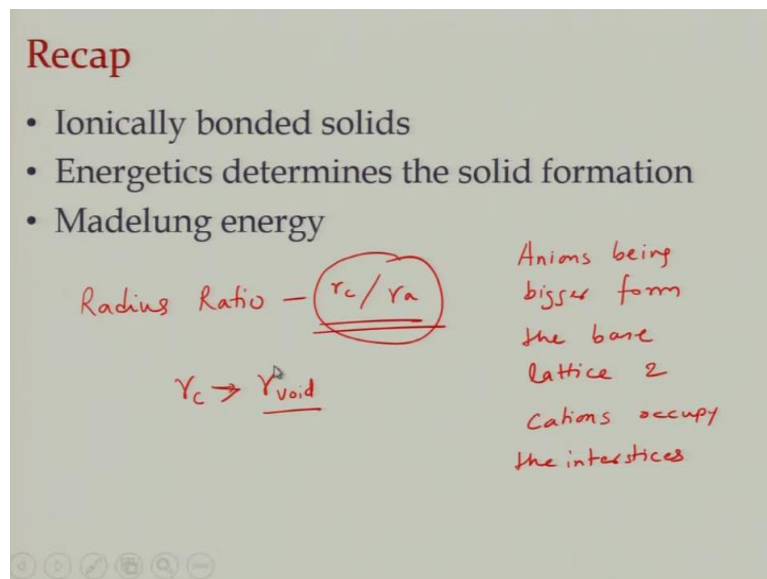 Recap
• Ionically bonded solids
• Energetics determines the solid formation
• Madelung energy
Radius Ratio — rc/ra
rc → rvoid
Anions being
bigger form
the base
lattice &
cations occupy
the interstices